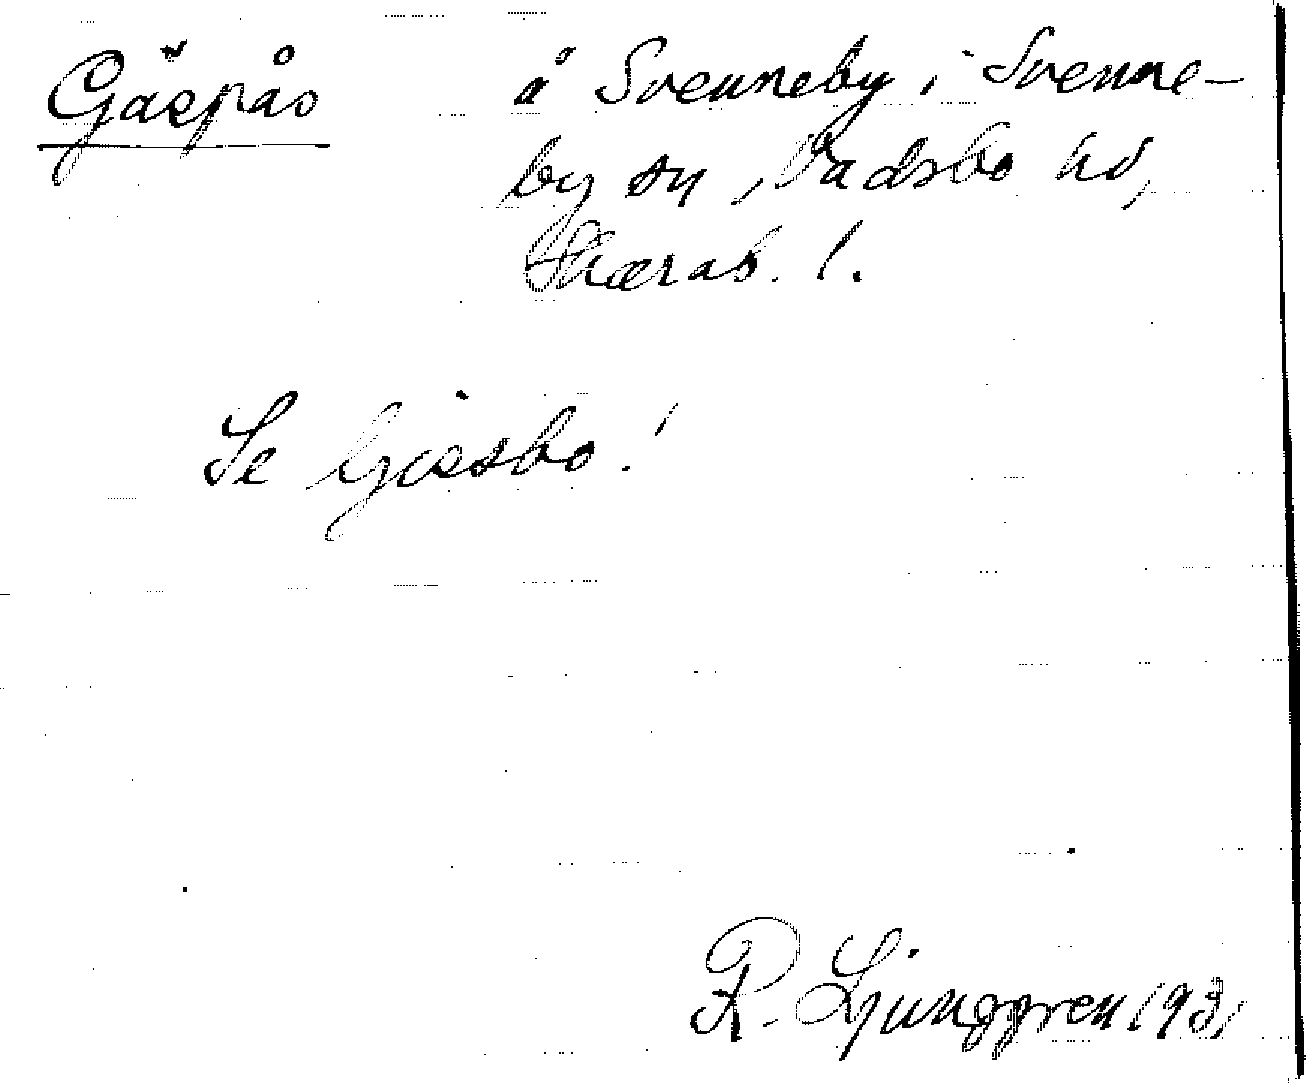 Gäspås å Svenneby i Svenne-
by sn, Vadsbo hd,
Skarab. l.
Se Gissbo!
R. Ljunggren 1931